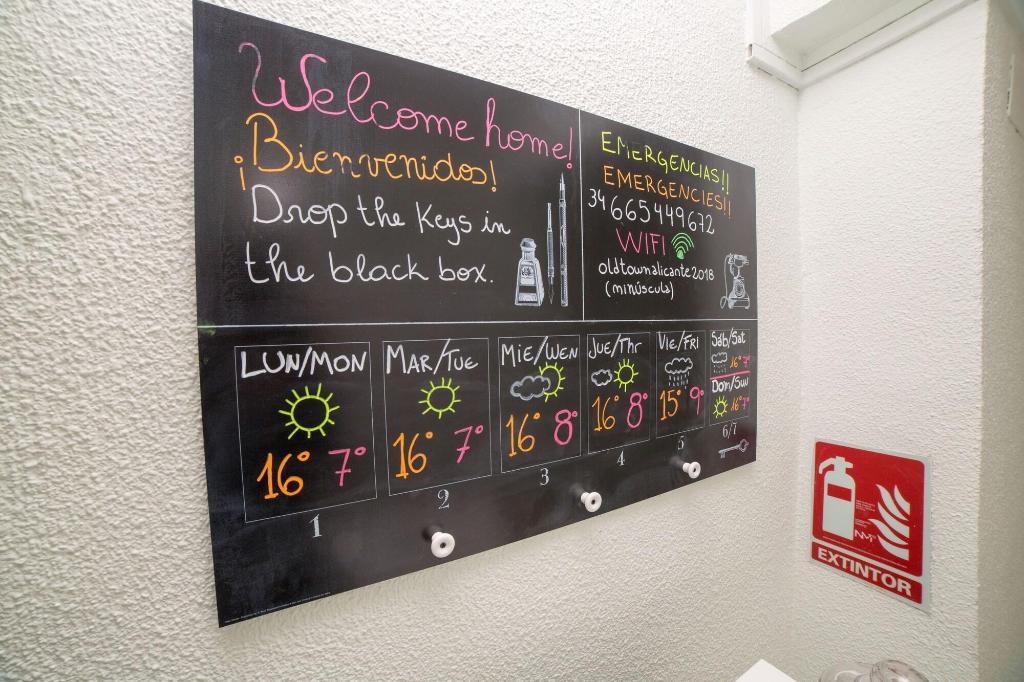 Welcome home!
¡Bienvenidos!
Drop the keys in
the black box.
EMERGENCIAS!!
EMERGENCIES!!
34 665449672
WIFI
oldtownalicante2018
(minúscula)
LUN/MON
16° 7°
1
MAR/TUE
16° 7°
2
MIE/WEN
16° 8°
3
JUE/Thr
16° 8°
4
Vie/FRI
15° 9°
5
Sáb/Sat
16° 7°
Dom/Sun
16° 7°
6/7
EXTINTOR